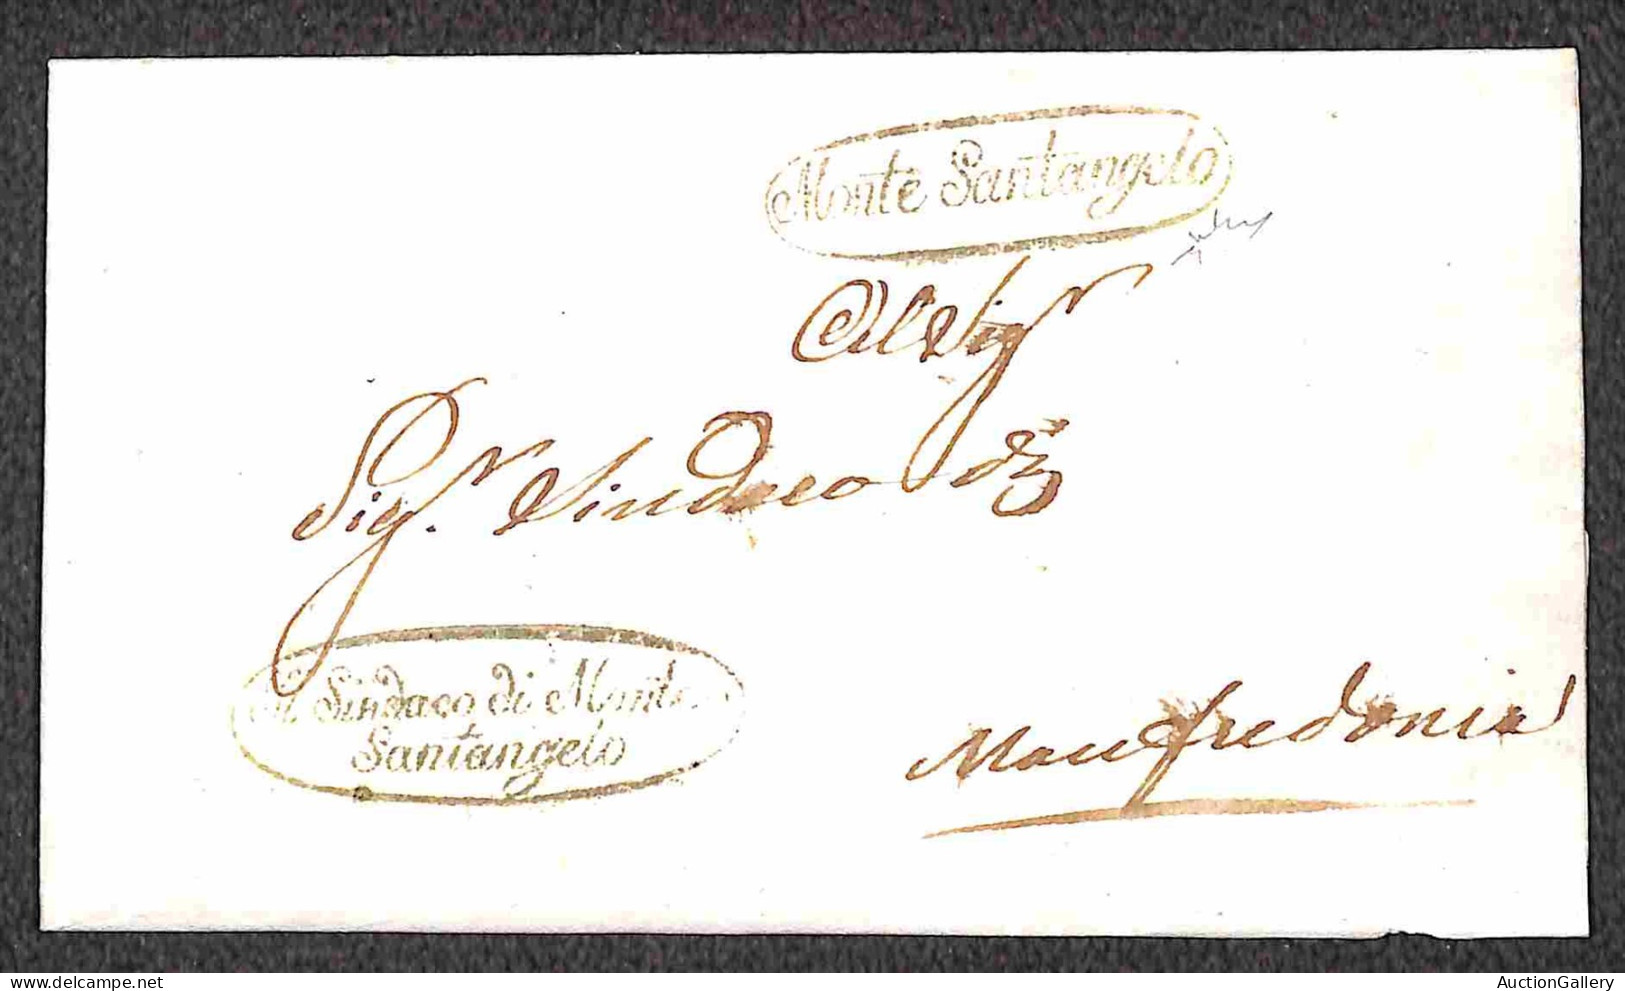 Monte Santangelo
Al Sigr
Sigr. Sindaco di
Il Sindaco di Monte
Santangelo
Manfredonia
AuctionGallery